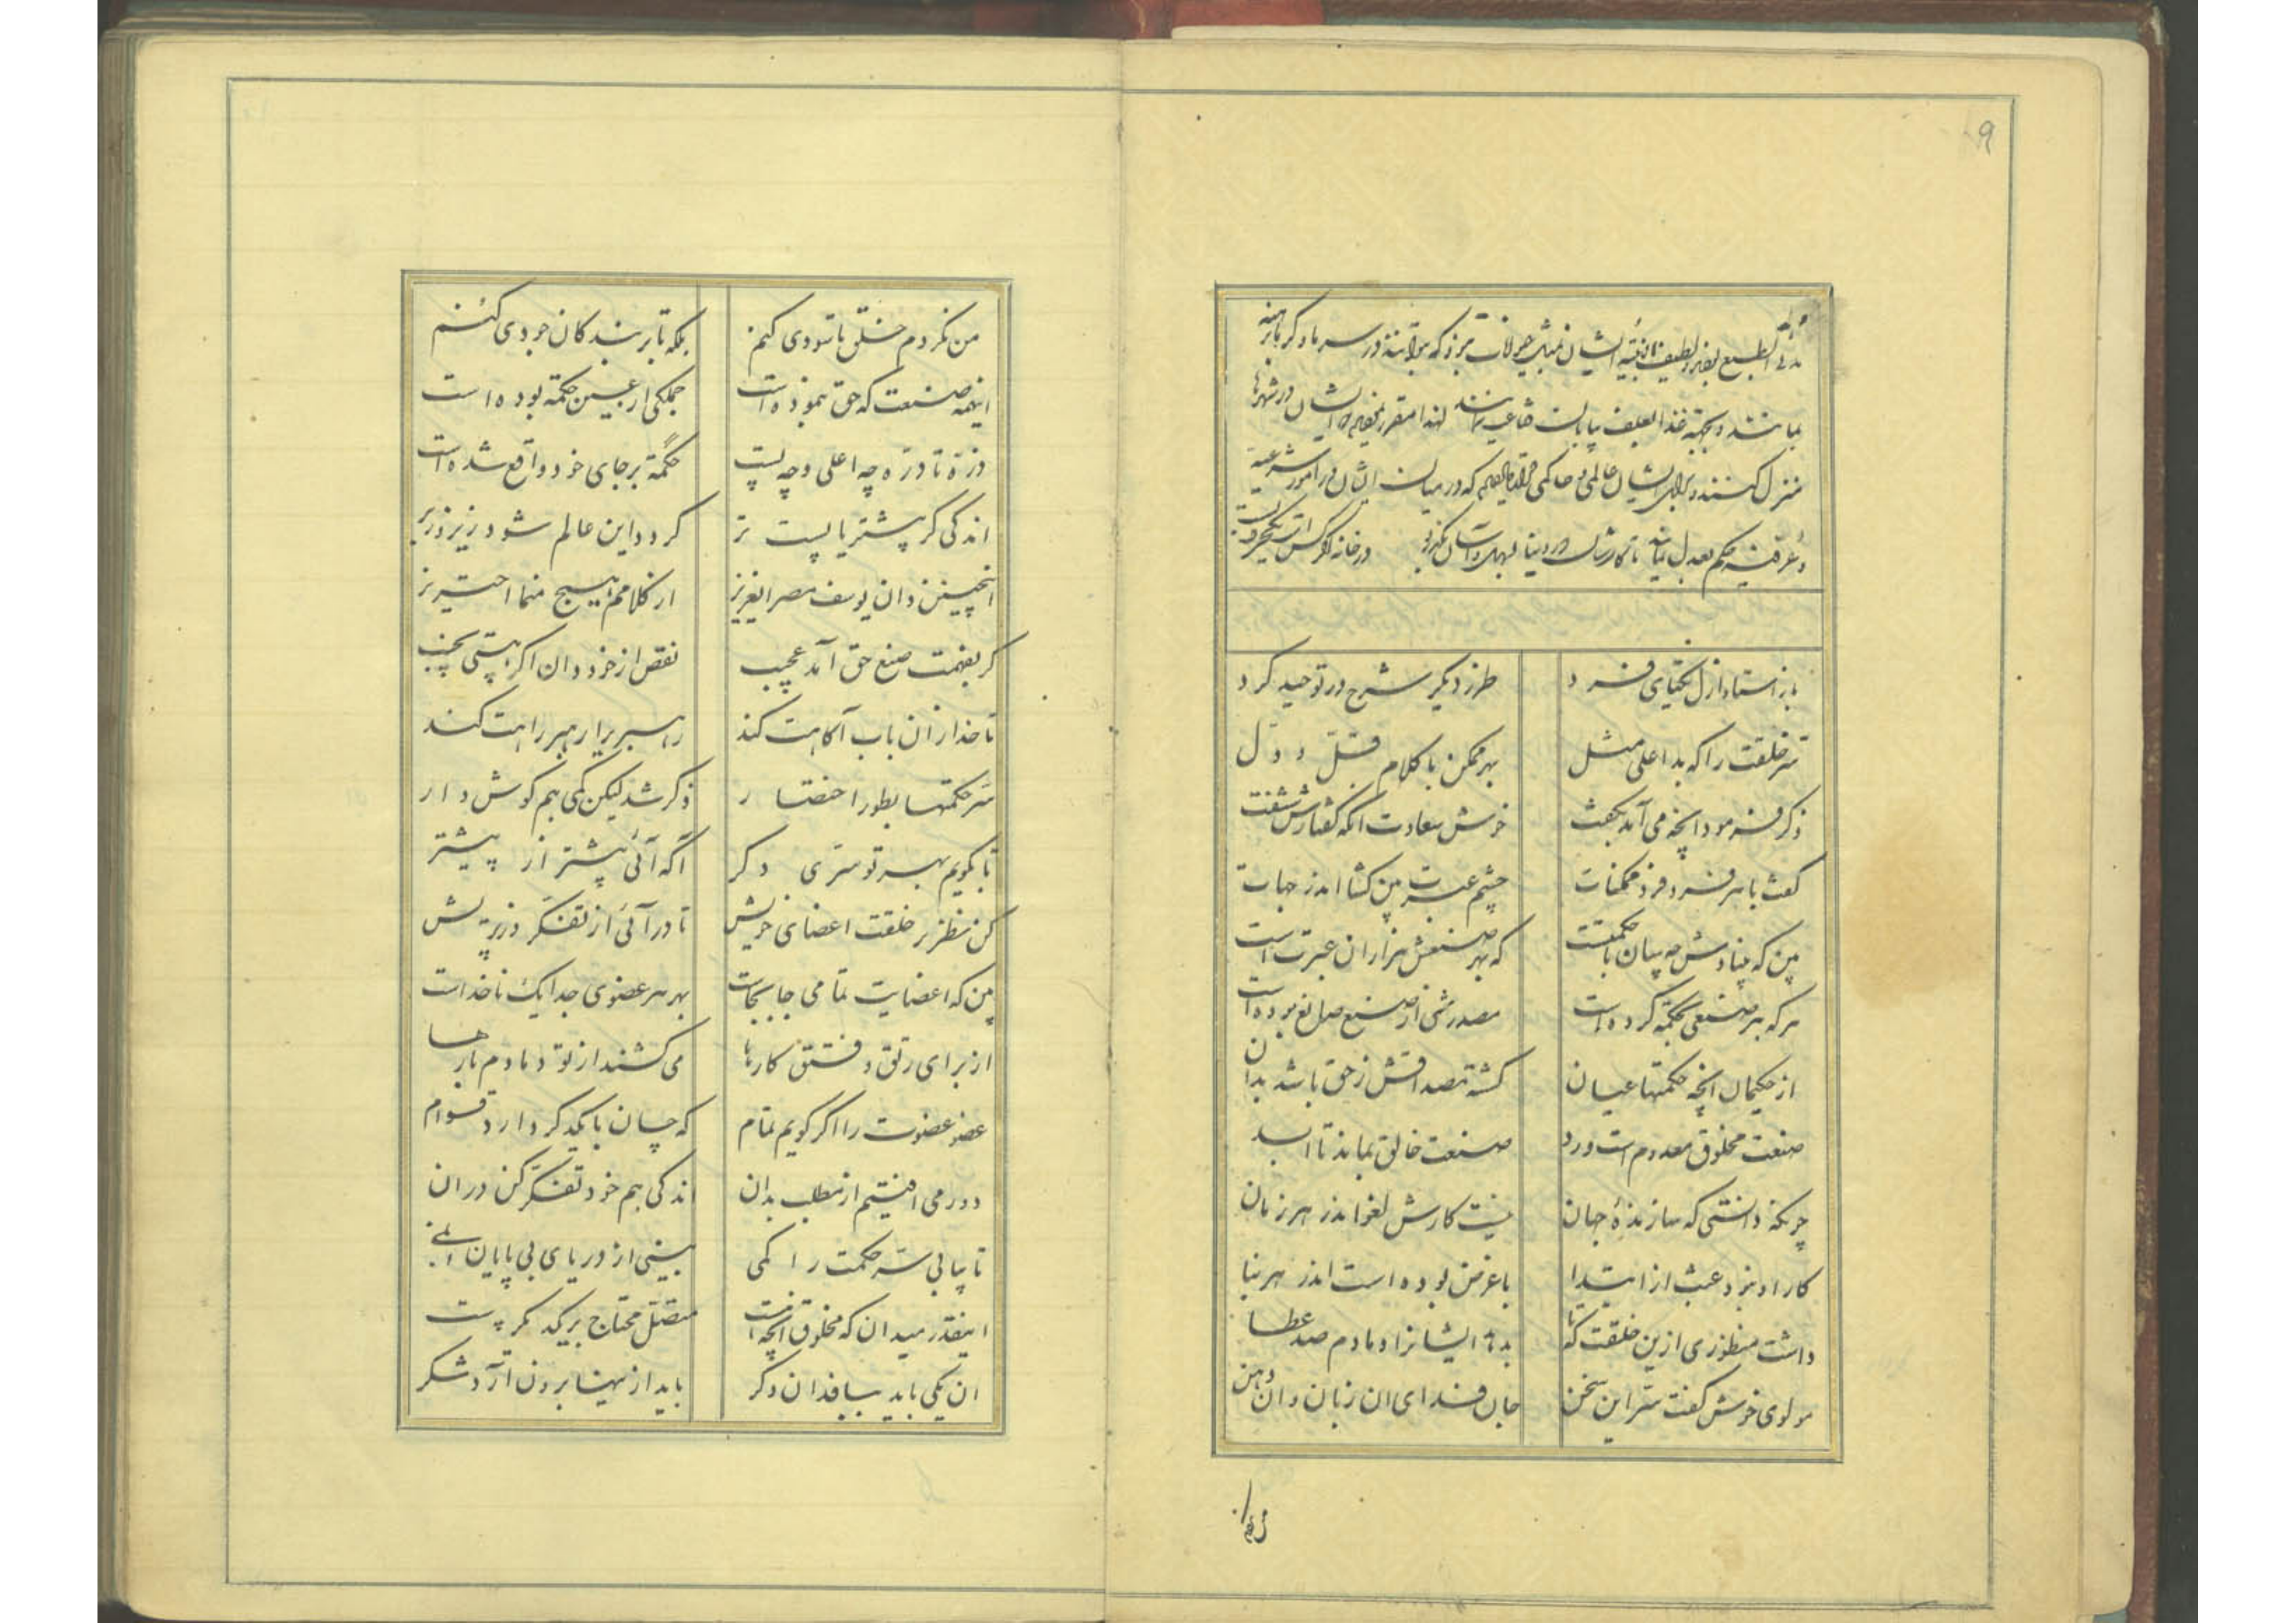 ۹
مدنی الطبع بغیر لطیف ایشان مثل حیوانات که در سرما و گرما برهنه
بمانند و بجهة غذا بعلف بیابان قناعت نمایند لهذا مقرر ایشان در شهرها
منزل کنند و برای ایشان عالمی و حاکمی که در میان ایشان در امور شرعیه
و عرفیه حکم بعدل نماید تا کارشان در دنیا در خانه اگر کس است یکحرف بس است
باز استاد ازل یکتای فرد
طرز دیگر شرح در توحید کرد
سّر خلقت را که بد اعلی مثل
بهر ممکن با کلام قلّ و دلّ
ذکر فرمود آنچه می آید بگفت
خوش سعادت آنکه گفتارش شنفت
گفت با هر فرد فرد ممکنات
چشم عبرت بین گشا اندر جهات
بین که بنیادش چه بنیان باحکمتست
که بهر صنعش هزاران عبرت است
هر که هر صنعی بحکمة کرده است
مصدرش از صنع صانع بوده است
از حکیمان آنچه حکمتها عیان
گشته مصداقش ز حق باشد بدان
صنعت مخلوق معدوم است ورد
صنعت خالق بماند تا ابد
چونکه دانستی که سازندهٔ جهان
نیست کارش لغو اندر هر زمان
کار او نبود عبث از ابتدا
با غرض بوده است اندر هر بنا
داشت منظوری ازین خلقت که تا
بدهد ایشانرا دمادم صد عطا
مولوی خوش گفت سّر این سخن
جان فدای ان زبان و ان دهن
من نکردم خلق تا سودی کنم
بلکه تا بر بندگان جودی کنم
اینهمه صنعت که حق بنموده است
جملگی از عین حکمة بوده است
ذرّه تا درّه چه اعلی و چه پست
حکمةً بر جای خود واقع شده است
اندکی گر پیشتر یا پست تر
گردد این عالم شود زیر و زبر
انچنین دان یوسف مصر ایعزیز
از کلامم هیچ منما احتریز
گر بفهمت صنع حق آمد عجیب
نقص از خود دان اگر هستی نجیب
تا خدا زان باب آگاهت کند
راهبر را رهبر راهت کند
سّر حکمتها بطور اختصار
ذکر شد لیکن کمی هم گوش دار
تا بگویم بهر تو سّری دگر
اگه آئی پیشتر از پیشتر
کن نظر بر خلقت اعضای خویش
تا در آئی از تفکّر در پریش
بین که اعضایت تمامی جابجاست
بهر هر عضوی جدا یک ناخداست
از برای رتق و فتق کارها
می کشند از تو دمادم بارها
عضو عضوت را اگر گویم تمام
که چسان با یکدگر دارد قوام
دور می افتیم از مطلب بدان
اندکی هم خود تفکّر کن در ان
تا بیابی سّر حکمت را کمی
بینی از دریای بی پایان نمی
اینقدر میدان که مخلوق آنچه است
متصل محتاج بر یکدگر است
ان یکی باید ببافد ان دگر
باید از نی ها برون آرد شکر
من نکردم